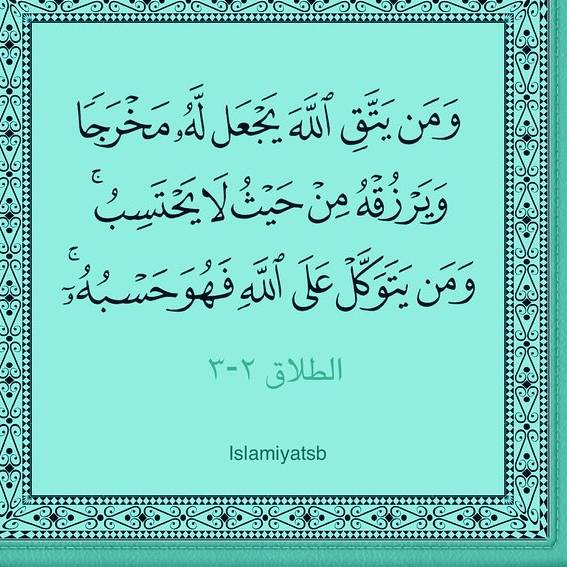 وَمَن يَتَّقِ ٱللَّهَ يَجْعَل لَّهُۥ مَخْرَجًا
وَيَرْزُقْهُ مِنْ حَيْثُ لَا يَحْتَسِبُ ۚ
وَمَن يَتَوَكَّلْ عَلَى ٱللَّهِ فَهُوَ حَسْبُهُۥٓ ۚ
الطلاق ٢-٣
Islamiyatsb